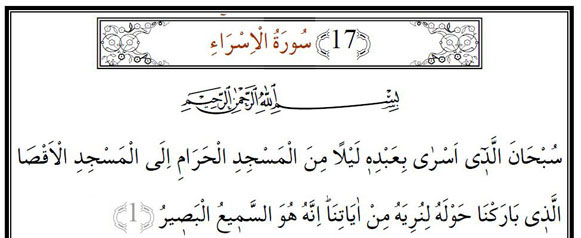 (17) سُورَةُ الْاِسْرَاءِ
بِسْمِ اللّٰهِ الرَّحْمٰنِ الرَّحِيمِ
سُبْحَانَ الَّذٖٓي اَسْرٰى بِعَبْدِهٖ لَيْلًا مِنَ الْمَسْجِدِ الْحَرَامِ اِلَى الْمَسْجِدِ الْاَقْصَا
الَّذٖي بَارَكْنَا حَوْلَهُ لِنُرِيَهُ مِنْ اٰيَاتِنَاؕ اِنَّهُ هُوَ السَّمٖيعُ الْبَصٖيرُ (1)